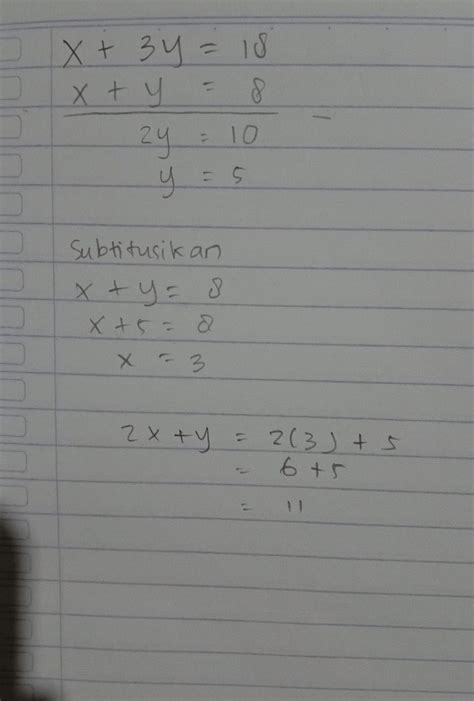 x + 3y = 18
x + y = 8
2y = 10 -
y = 5
Subtitusikan
x + y = 8
x + 5 = 8
x = 3
2x + y = 2(3) + 5
= 6 + 5
= 11